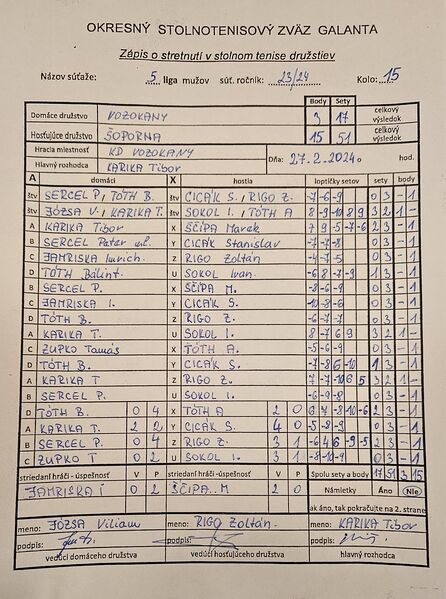 OKRESNÝ STOLNOTENISOVÝ ZVÄZ GALANTA
Zápis o stretnutí v stolnom tenise družstiev
Názov súťaže: 5 liga mužov súť. ročník: 23/24 Kolo: 15
Body Sety
Domáce družstvo VOZOKANY 3 17 celkový výsledok
Hosťujúce družstvo ŠOPORŇA 15 51 celkový výsledok
Hracia miestnosť KD VOZOKANY
Hlavný rozhodca KARIKA Tibor Dňa: 27.2.2024 o hod.
A domáci X hostia loptičky setov sety body
štv SERCEL P., TÓTH B. štv CICÁK S., RIGO Z. -7 -6 -9 0 3 - 1
štv JÓZSA V., KARIKA T. štv SOKOL I., TÓTH A 8 -9 -10 8 9 3 2 1 -
A KARIKA Tibor X ŠČÍPA Marek 7 9 -5 -7 -6 2 3 - 1
B SERCEL Peter ml. Y CICÁK Stanislav -7 -7 -8 0 3 - 1
C JAMRISKA Imrich. Z RIGO Zoltán -4 -7 -5 0 3 - 1
D TÓTH Bálint. U SOKOL Ivan. -6 8 -7 -9 1 3 - 1
B SERCEL P. X ŠČÍPA M. -8 -6 -9 0 3 - 1
C JAMRISKA I. Y CICÁK S. -10 -8 -6 0 3 - 1
D TÓTH B. Z RIGO Z. -6 -7 -7 0 3 - 1
A KARIKA T. U SOKOL I. 8 -7 6 9 3 1 1 -
C ZUPKO Tamás X TÓTH A. -5 -6 -9 0 3 - 1
D TÓTH B. Y CICÁK S. -7 -8 6 -10 1 3 - 1
A KARIKA T Z RIGO Z. 7 -7 -10 6 5 3 2 1 -
B SERCEL P. U SOKOL I. -6 -9 0 3 - 1
D TÓTH B. 0 4 X TÓTH A 2 0 6 7 -8 -10 -6 2 3 - 1
A KARIKA T. 2 2 Y CICÁK S. 4 0 -5 -8 -8 0 3 - 1
B SERCEL P. 0 4 Z RIGO Z 3 1 -6 4 6 -9 -5 2 3 - 1
C ZUPKO T 0 2 U SOKOL I. 3 1 -8 0 3 - 1
striedaní hráči - úspešnosť V P striedaní hráči - úspešnosť V P Spolu sety a body 17 51 3 15
JAMRISKA I 0 2 ŠČÍPA. M 2 0 Námietky Áno Nie
ak áno, tak pokračujte na 2. strane
meno: JÓZSA Viliam meno: RIGO Zoltán. meno: KARIKA Tibor
podpis: podpis: podpis:
vedúci domáceho družstva vedúci hosťujúceho družstva hlavný rozhodca